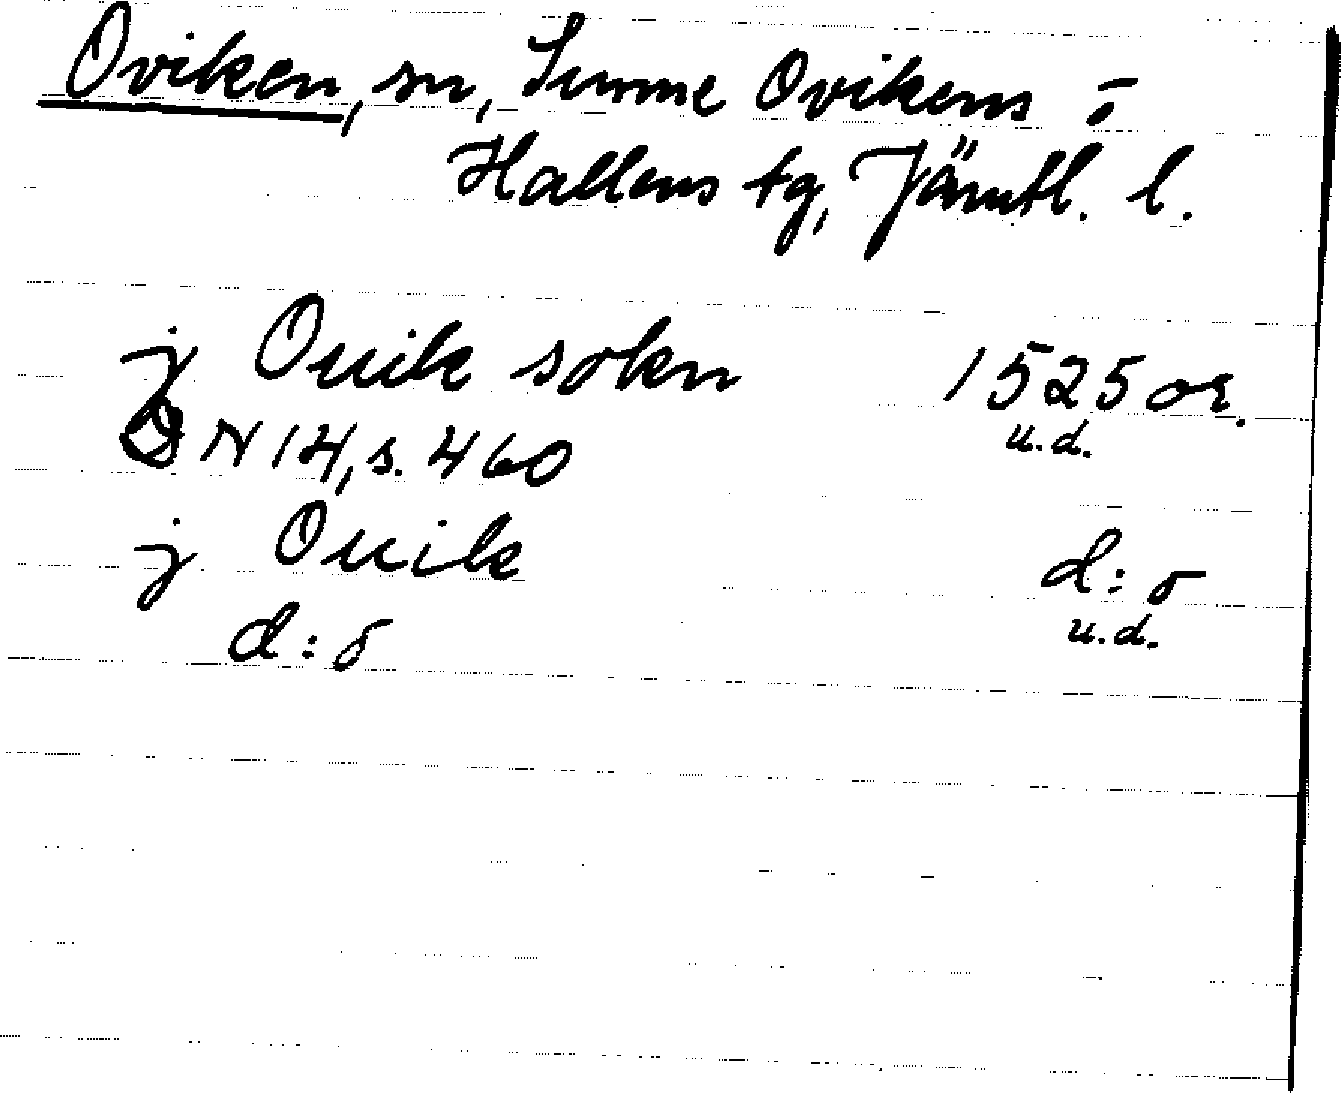 Oviken, sn, Sunne Ovikens o
Hallens tg, Jämtl. l.
j Ouik sokn 1525 or.
u.d.
DN 14, s. 460
j Ouik d:o
u.d.
d:o